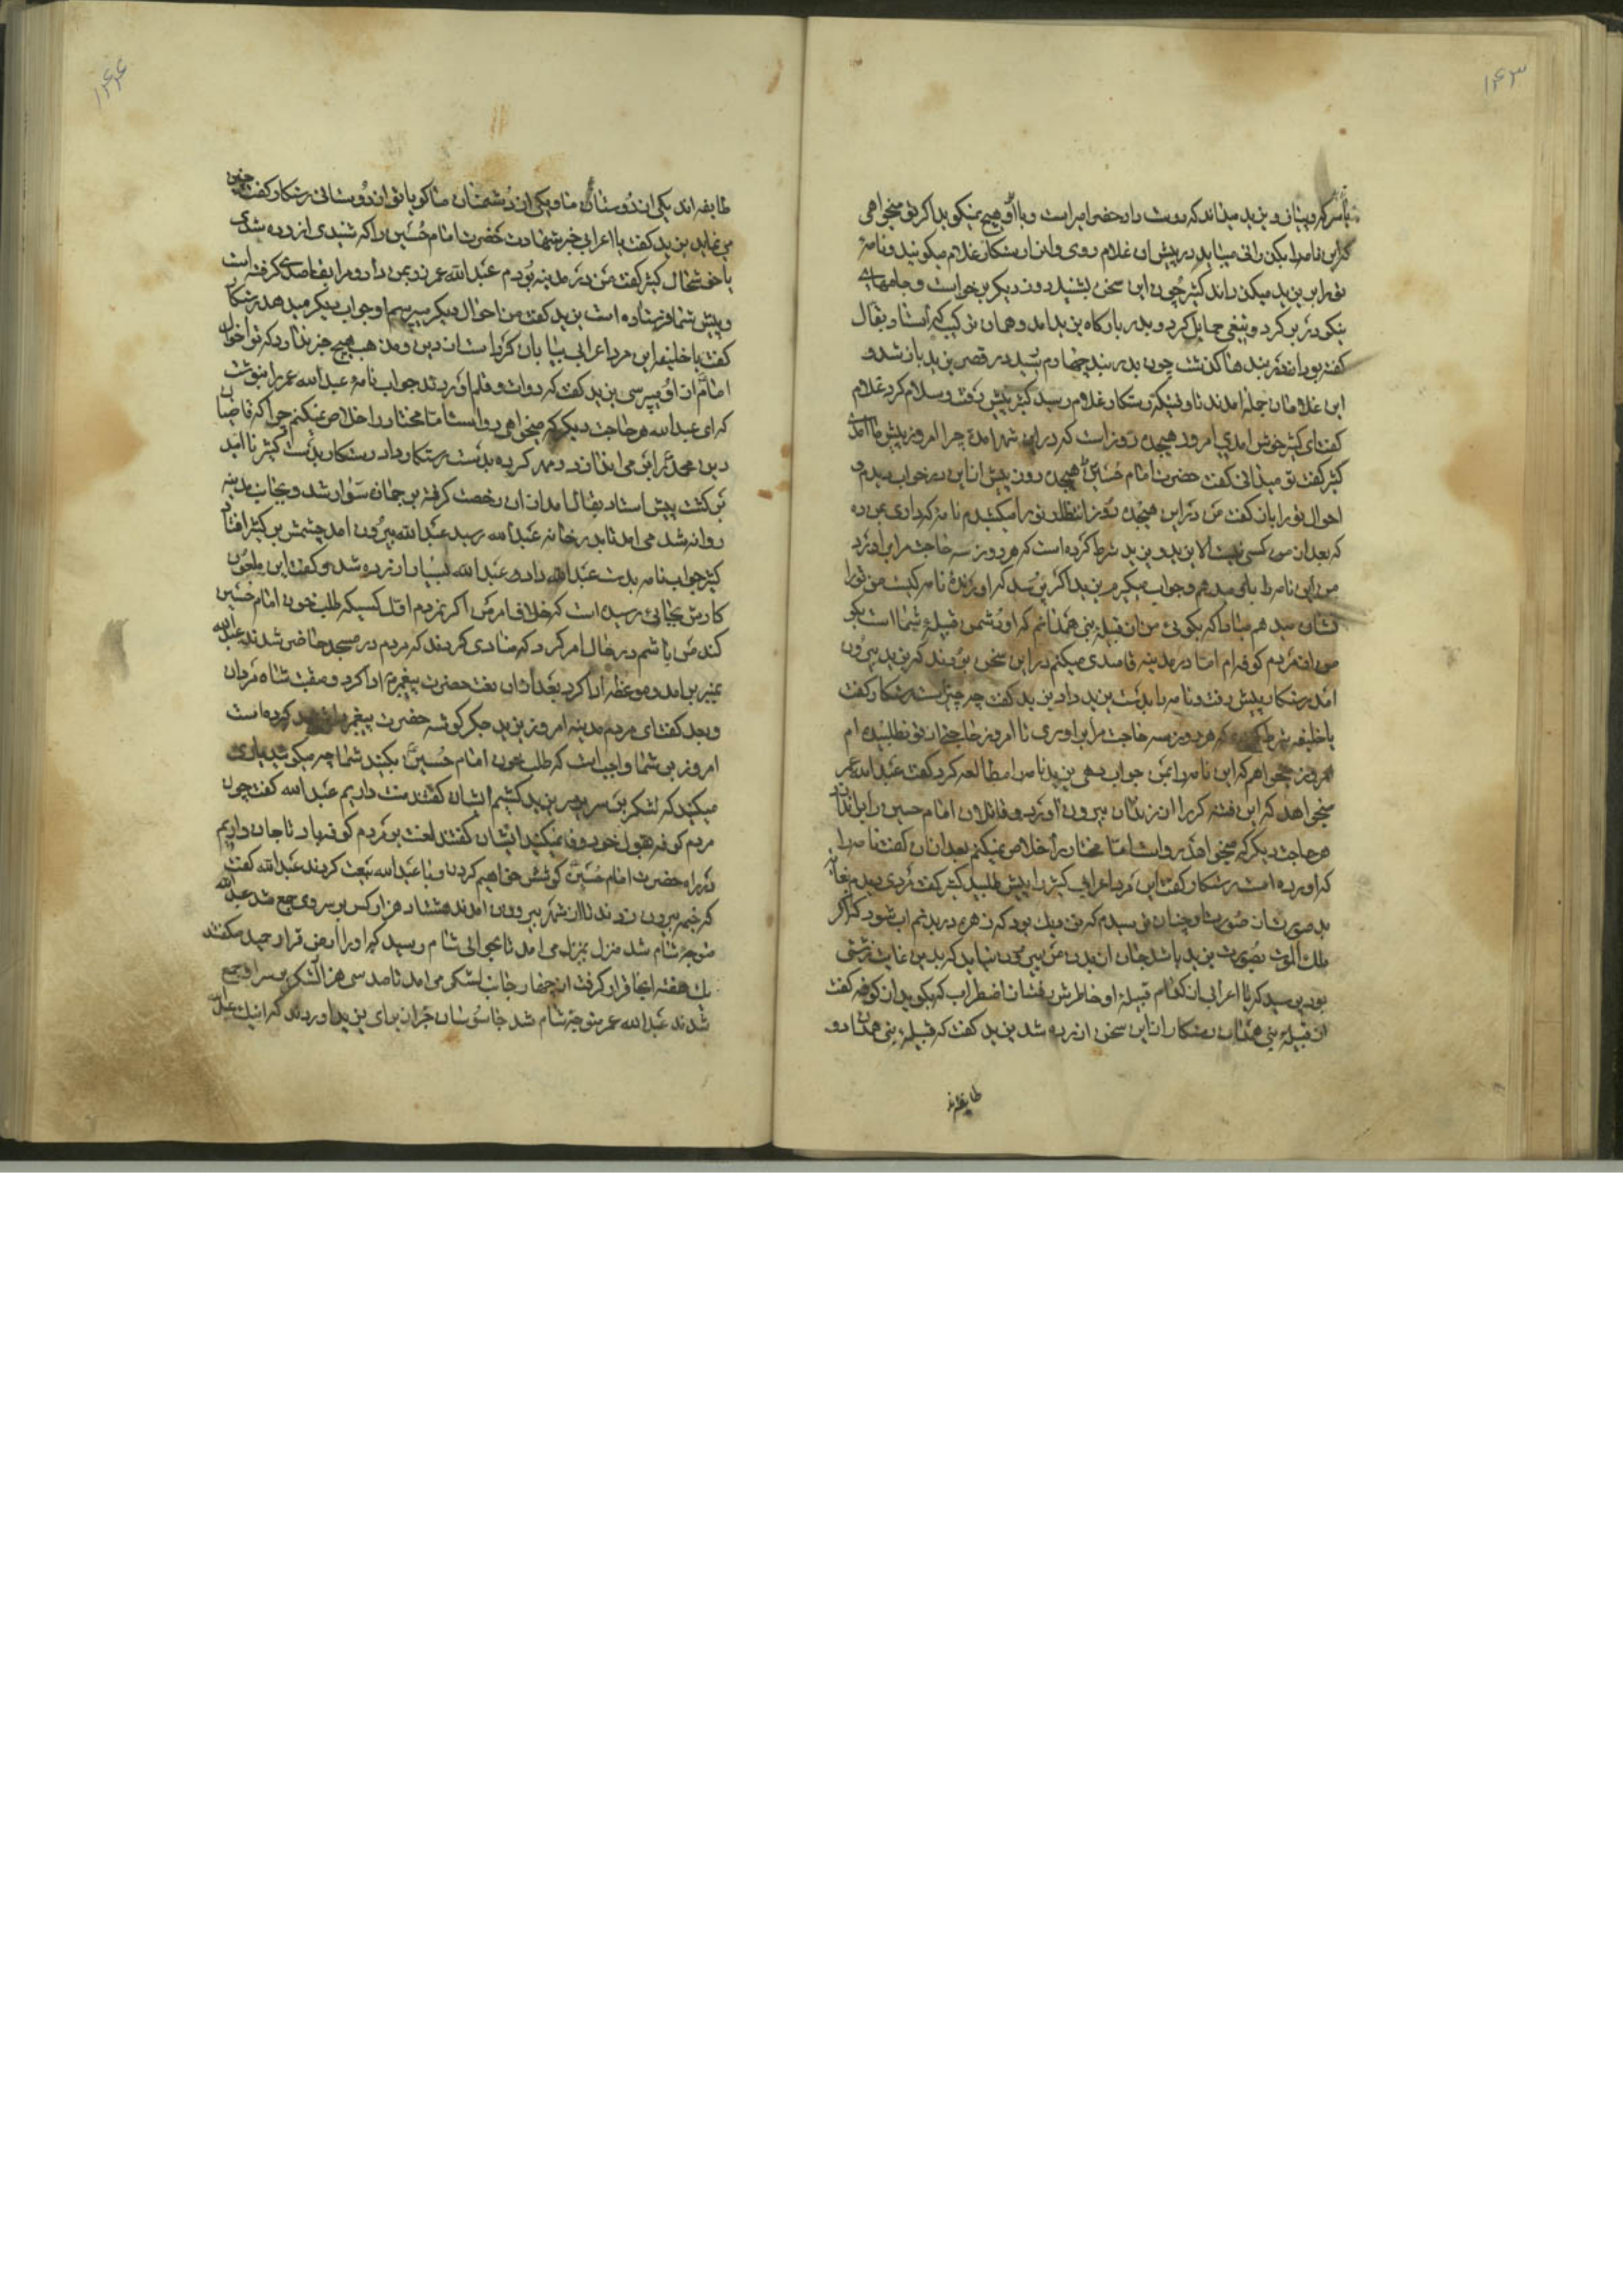 ۱۴۳
کار این نامه را بکن رانی میباید در پیش ان غلام روی و انرا رستکار غلام میکویند و نامهٔ
تو را بر یزید میکذراند کثیر چون این سخن بشنید روز دیکر برخواست و جامهاے
نیکو در بر کرد و تیغی حمایل کرد و بدر بارکاه یزید امد و همان ترکیب که استاد بقال
کفته بود از در بندها کذشت چون بدر بند چهارم رسید در قصر یزید باز شد و
این غلامان جمله امدند تا وقتیکه رستکار غلام رسید کثیر پیش رفت و سلام کرد غلام
کفت ای کثیر خوش امدی امروز هیجده روز است که در این شهر امدهٔ چرا امروز پیش ما امدی
کثیر کفت تو میدانی کفت حضرت امام حسین هیجده روز پیش از این در خواب دیدم و
احوال تو را با من کفت من در این هیجده روز انتظار تو را میکشیدم نامه که داری بمن ده
که بعد از من کسی نیست الا یزید و یزید شرط کرده است که هر روز سه حاجت مرا براورد
من این نامه را باو میدهم و جواب میکیرم یزید اکر پرسد که اورندهٔ نامه کیست من تو را
نشان میدهم مبادا که بکوئی من از قبیلهٔ بنی همدانم که او دشمن قبیلهٔ شما است بکو
من از مردم کوفه ام اما در مدینه قاصدی میکنم در این سخن بودند که یزید بیرون
امد رستکار پیش رفت و نامه را بدست یزید داد یزید کفت چه چیز است رستکار کفت
یا خلیفه شرط کرده که هر روز سه حاجت مرا براوری تا امروز حاجتی از تو نطلبیده ام
امروز میخواهم که این نامه را بمن جواب دهی یزید نامه را مطالعه کرد کفت عبدالله عمر
میخواهد که این فتنه کر را از زندان بیرون اورد و قاتلان امام حسین را براندازد
هر حاجت دیکر که میخواهد رواست اما مختار را خلاص نمیکنم بعد از ان کفت نامه را
که اورده است رستکار کفت این مرد اعرابی کثیر را پیش طلبید کثیر کفت مردی دیدم بغایت
بد صورت از صورت او چنان ترسیدم که نزدیک بود که زهره در بدنم اب شود کفتم اکر
ملک الموت بصورت یزید باشد جان از بدن من بیرون نیاید که بدین غایت زشتی
بود پرسید که یا اعرابی از کدام قبیلهٔ او خاطرش رفت از اضطراب که بکوید از کوفه کفت
از قبیلهٔ بنی همدان رستکار از این سخن ازرده شد یزید کفت که قبیلهٔ بنی همدان دو
طایفه اند
۱۴۴
طایفه اند یکی از دوستان ما و یکی از دشمنان ما کویا تو از دوستانی رستکار کفت چنین
می نماید یزید کفت یا اعرابی خبر شهادت حضرت امام حسین را که شنیدی ازرده شدی
یا خوشحال کثیر کفت من در مدینه بودم عبدالله عمر زر بمن داد و مرا بقاصدی کرفته است
و پیش شما فرستاده است یزید کفت من احوال دیکر میپرسم او جواب دیکر میدهد رستکار
کفت یا خلیفه این مرد اعرابی بیابان کرد است از دین و مذهب هیچ خبر ندارد که تو احوال
امام از او میپرسی یزید کفت که دوات و قلم اوردند جواب نامهٔ عبدالله عمر را بنوشت
که ای عبدالله هر حاجت دیکر که میخواهی رواست اما مختار را خلاص نمیکنم چرا که قاصبانی
دین محمد را بر می اندازد و مهر کرده بدست رستکار داد رستکار بدست کثیر نا امید
بر کشت پیش استاد بقال امد از ان رخصت کرفته بر جمازه سوار شد و بجانب مدینه
روانه شد می امد تا بدر خانه عبدالله رسید عبدالله بیرون امد چشمش بر کثیر افتاد
کثیر جواب نامه بدست عبدالله داد و عبدالله بسیار ازرده شد و کفت این ملعون
کارش بجائی رسیده است که خلاف امر من اکر نمردم اول کسیکه طلب خون امام حسین
کند من باشم در حال امر کرد که منادی کردند که مردم در مسجد حاضر شدند عبدالله
بمنبر بر امد و موعظه ادا کرد بعد از ان نعت حضرت پیغمبر ادا کرد و منقبت شاه مردان
و بعد کفت ای مردم مدینه امروز یزید جکر کوشه حضرت پیغمبر را شهید کرده است
امروز بر شما واجب است که طلب خون امام حسین بکنید شما چه میکوئید یاری
میکنید که لشکر بر سر یزید کشیم ایشان کفتند منت داریم عبدالله کفت چون
مردم کوفه بقول خود وفا نمیکنید ایشان کفتند لعنت بر مردم کوفه باد تا جان داریم
در راه حضرت امام حسین کوشش خواهیم کرد و با عبدالله بیعت کردند عبدالله کفت
که خیمه بیرون زدند تا از شهر بیرون امدند هشتاد هزار کس بر سر وی جمع شد عبدالله
متوجه شام شد منزل بمنزل می امد تا بحوالی شام رسید که او را ارض قرار حید میکفتند
یک هفته انجا قرار کرفت از چهار جانب لشکر می امد تا صد سی هزار لشکر بر سر او جمع
شدند عبدالله عمر متوجه شام شد جاسوسان خبر از برای یزید اوردند که اینک عبدالله